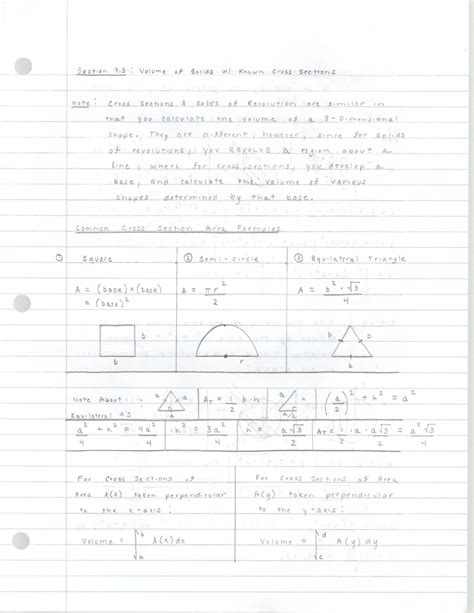 Section 7.3 : Volume of Solids w/ Known Cross Sections
Note : Cross Sections & Solids of Revolution are similar in
that you calculate the volume of a 3-Dimensional
shape. They are different, however, since for solids
of revolutions, you REVOLVE a region about a
line, where for cross sections, you develop a
base, and calculate the volume of various
shapes determined by that base.
Common Cross Section Area Formulas
① Square ② Semi-circle ③ Equilateral Triangle
A = (base)×(base) = (base)² A = πr²/2 A = b²·√3/4
b b r b b b
Note About Equilateral Δ's a a A_T = 1/2 b·h a (a/2)² + h² = a²
a²/4 + h² = 4a²/4 h² = 3a²/4 h = a√3/2 A_T = 1/2 · a · a√3/2 = a²√3/4
For Cross Sections of For Cross Sections of Area
Area A(x) taken perpendicular A(y) taken perpendicular
to the x-axis : to the y-axis :
Volume = ∫_a^b A(x) dx Volume = ∫_c^d A(y) dy